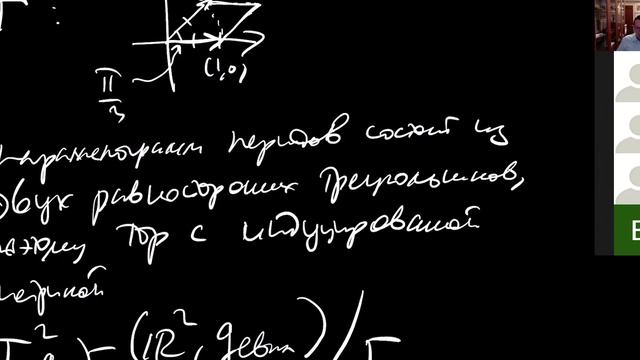 Г :
(1,0)
π/3
параллелограмм периодов состоит из
двух равносторонних треугольников,
поэтому тор с индуцированной
метрикой
T² = (ℝ², gевкл) / Г
E